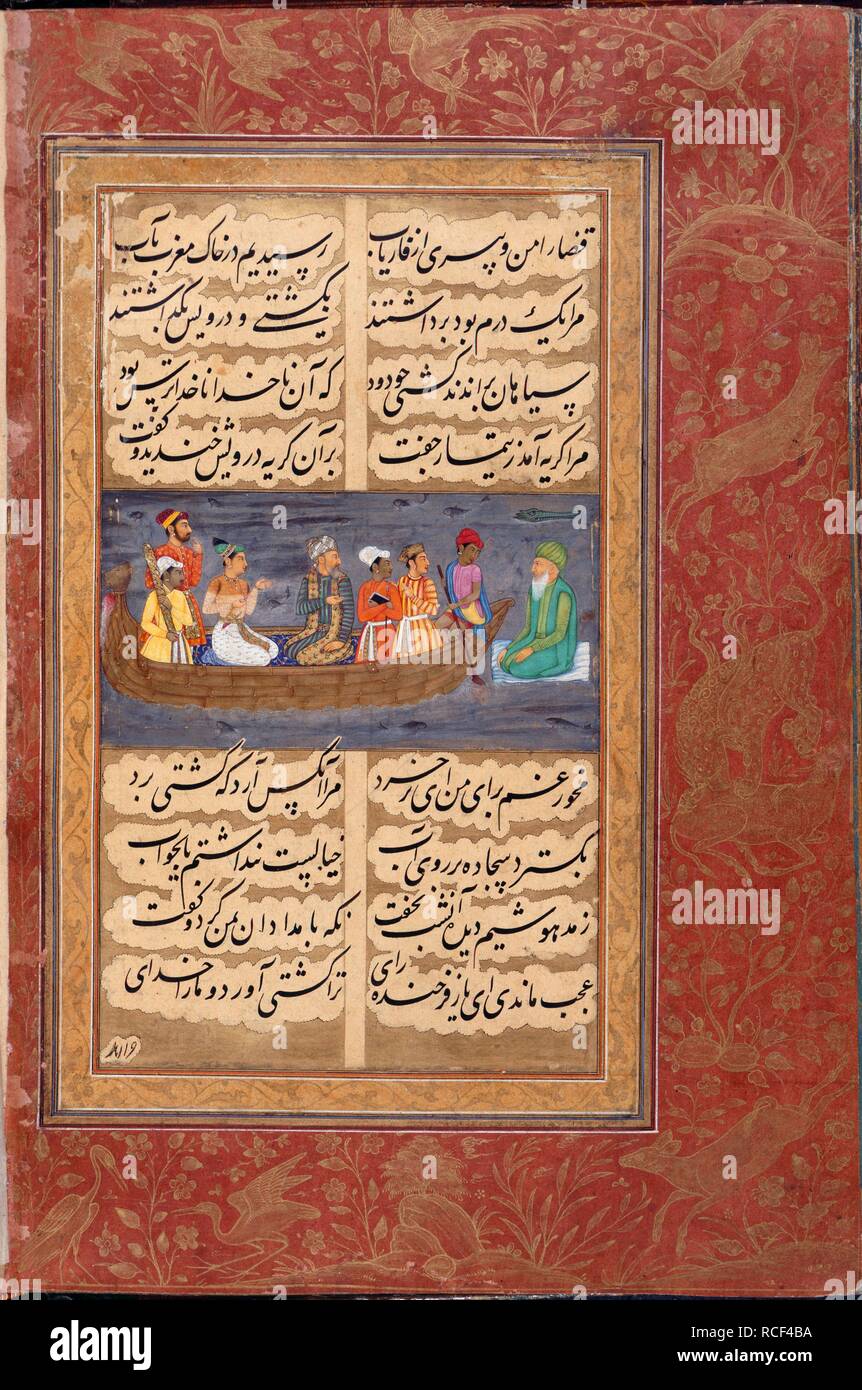 قضا را من و پیری از فاریاب رسیدیم در خاک مغرب بآب
مرا یک درم بود برداشتند بکشتی و درویش بگذاشتند
سیاهان براندند کشتی چو دود که آن ناخدا ناخدا ترس بود
مرا گریه آمد ز تیمار جفت بر آن گریه درویش خندید و گفت
مخور غم برای من ای پر خرد مرا آنکس آرد که کشتی برد
بگسترد سجاده بر روی آب خیالیست پنداشتم یا بخواب
ز مدهوشیم دیده آن شب نخفت نگه بامدادان بمن کرد و گفت
عجب ماندی ای یار فرخنده رای ترا کشتی آورد و ما را خدای
alamy
Image ID: RCF4BA
www.alamy.com